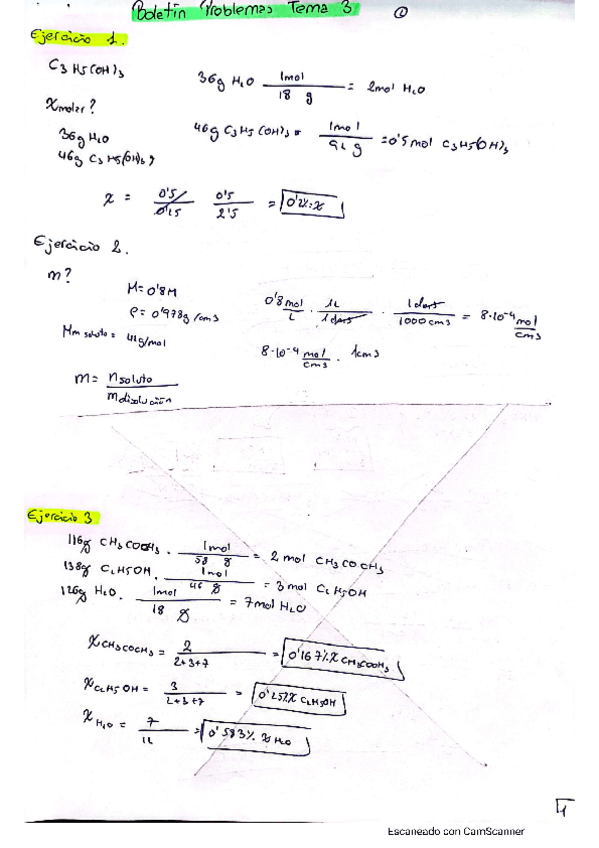 Boletín Problemas Tema 3 1
Ejercicio 1.
C3H5(OH)3
36g H2O 1mol / 18 g = 2mol H2O
Xmolar?
36g H2O
46g C3H5(OH)3
46g C3H5(OH)3 · 1mol / 92 g = 0'5mol C3H5(OH)3
x = 0'5 / 0'5 / 2'5 = 0'2 = x
Ejercicio 2.
m?
M = 0'8M
ρ = 0'978g/cm3
Mm soluto = g/mol
0'8mol / L · 1L / 1dm3 · 1dm3 / 1000cm3 = 8·10-4 mol / cm3
8·10-4 mol / cm3 · 1cm3
m = n soluto / m disolución
Ejercicio 3
116g CH3COCH3 · 1mol / 58 g = 2 mol CH3COCH3
138g C2H5OH · 1mol / 46 g = 3 mol C2H5OH
126g H2O · 1mol / 18 g = 7mol H2O
X CH3COCH3 = 2 / 2+3+7 = 0'167% X CH3COCH3
X C2H5OH = 3 / 2+3+7 = 0'25% X C2H5OH
X H2O = 7 / 12 = 0'583% X H2O
Escaneado con CamScanner